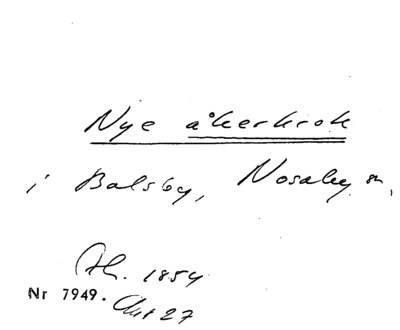 Nye åkerkrok
i Balsby, Nosaby sn,
Th. 1854
Nr 7949. Akt 27